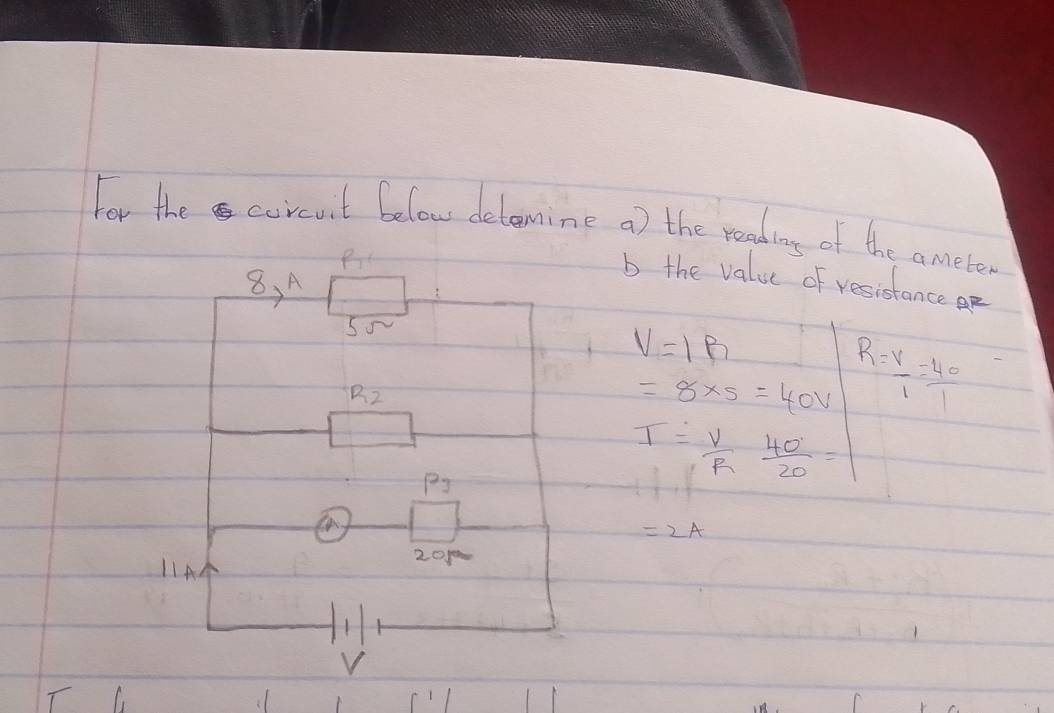 For the curcuit below detemine a) the reading of the ameter
b the value of resistance R2
8 A
R1
5Ω
R2
A
R3
20Ω
11A
V
V = I R
= 8 × 5 = 40V
I = V/R 40/20 =
= 2A
R = V/I = 40/1